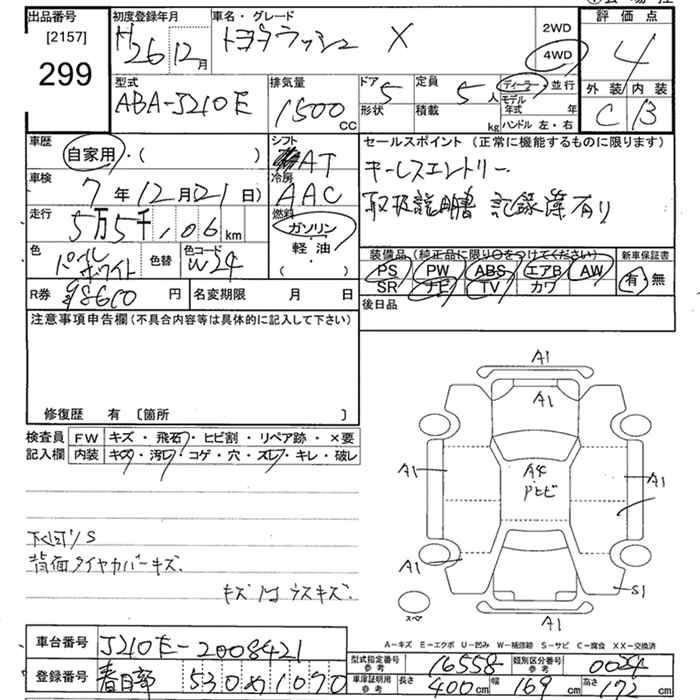 出品番号
[2157]
299
初度登録年月
H26 12月
車名・グレード
トヨタラッシュ X
2WD
4WD
評価点
4
外装 内装
C B
型式
ABA-J210E
排気量
1500 CC
ドア 5
形状
定員 5人
積載 kg
ディーラー・並行
モデル年式 年
ハンドル 左・右
車歴
自家用・( )
シフト
AT
セールスポイント (正常に機能するものに限ります)
キーレスエントリー
取扱説明書 記録簿有り
車検
7年12月21日
冷房
AAC
走行
5万5千,06 km
燃料
ガソリン
軽・油
( )
色
パールホワイト
色替
色コード
W24
装備品 (純正品に限り○をつけてください)
PS PW ABS エアB AW
SR ナビ TV カワ
新車保証書
有・無
R券
¥8600 円
名変期限 月 日
後日品
注意事項申告欄 (不具合内容等は具体的に記入して下さい)
修復歴 有 [箇所 ]
検査員記入欄
FW キズ・飛石・ヒビ割・リペア跡・×要
内装 キズ・汚レ・コゲ・穴・スレ・キレ・破レ
下回りS
背面タイヤカバーキズ
A1
A1
A1
A4
A1
A1
S1
A1
スペア
A-キズ E-エクボ U-凹み W-補修跡 S-サビ C-腐食 XX-交換済
車台番号
J210E-2008421
登録番号
春日部 530 1070
型式指定番号 参考
16558
類別区分番号 参考
0024
車庫証明用 参考
長さ 400cm
幅 169cm
高さ 172cm